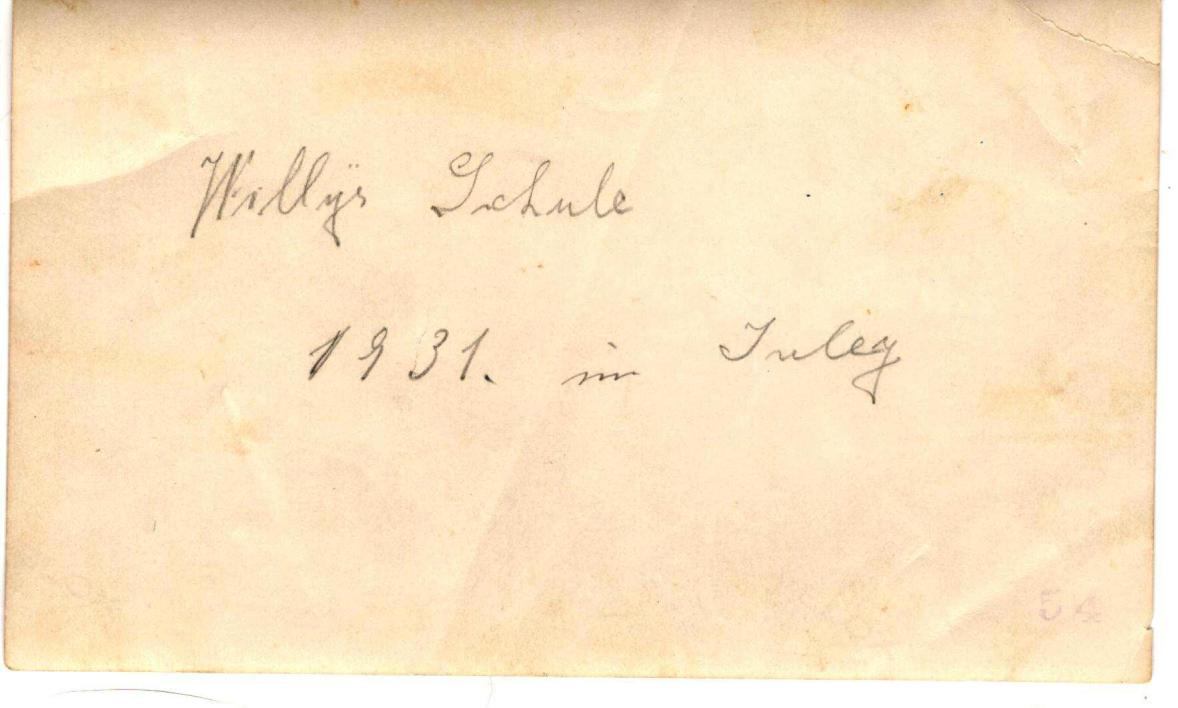 Willÿs Schule
1931. im Juley
54